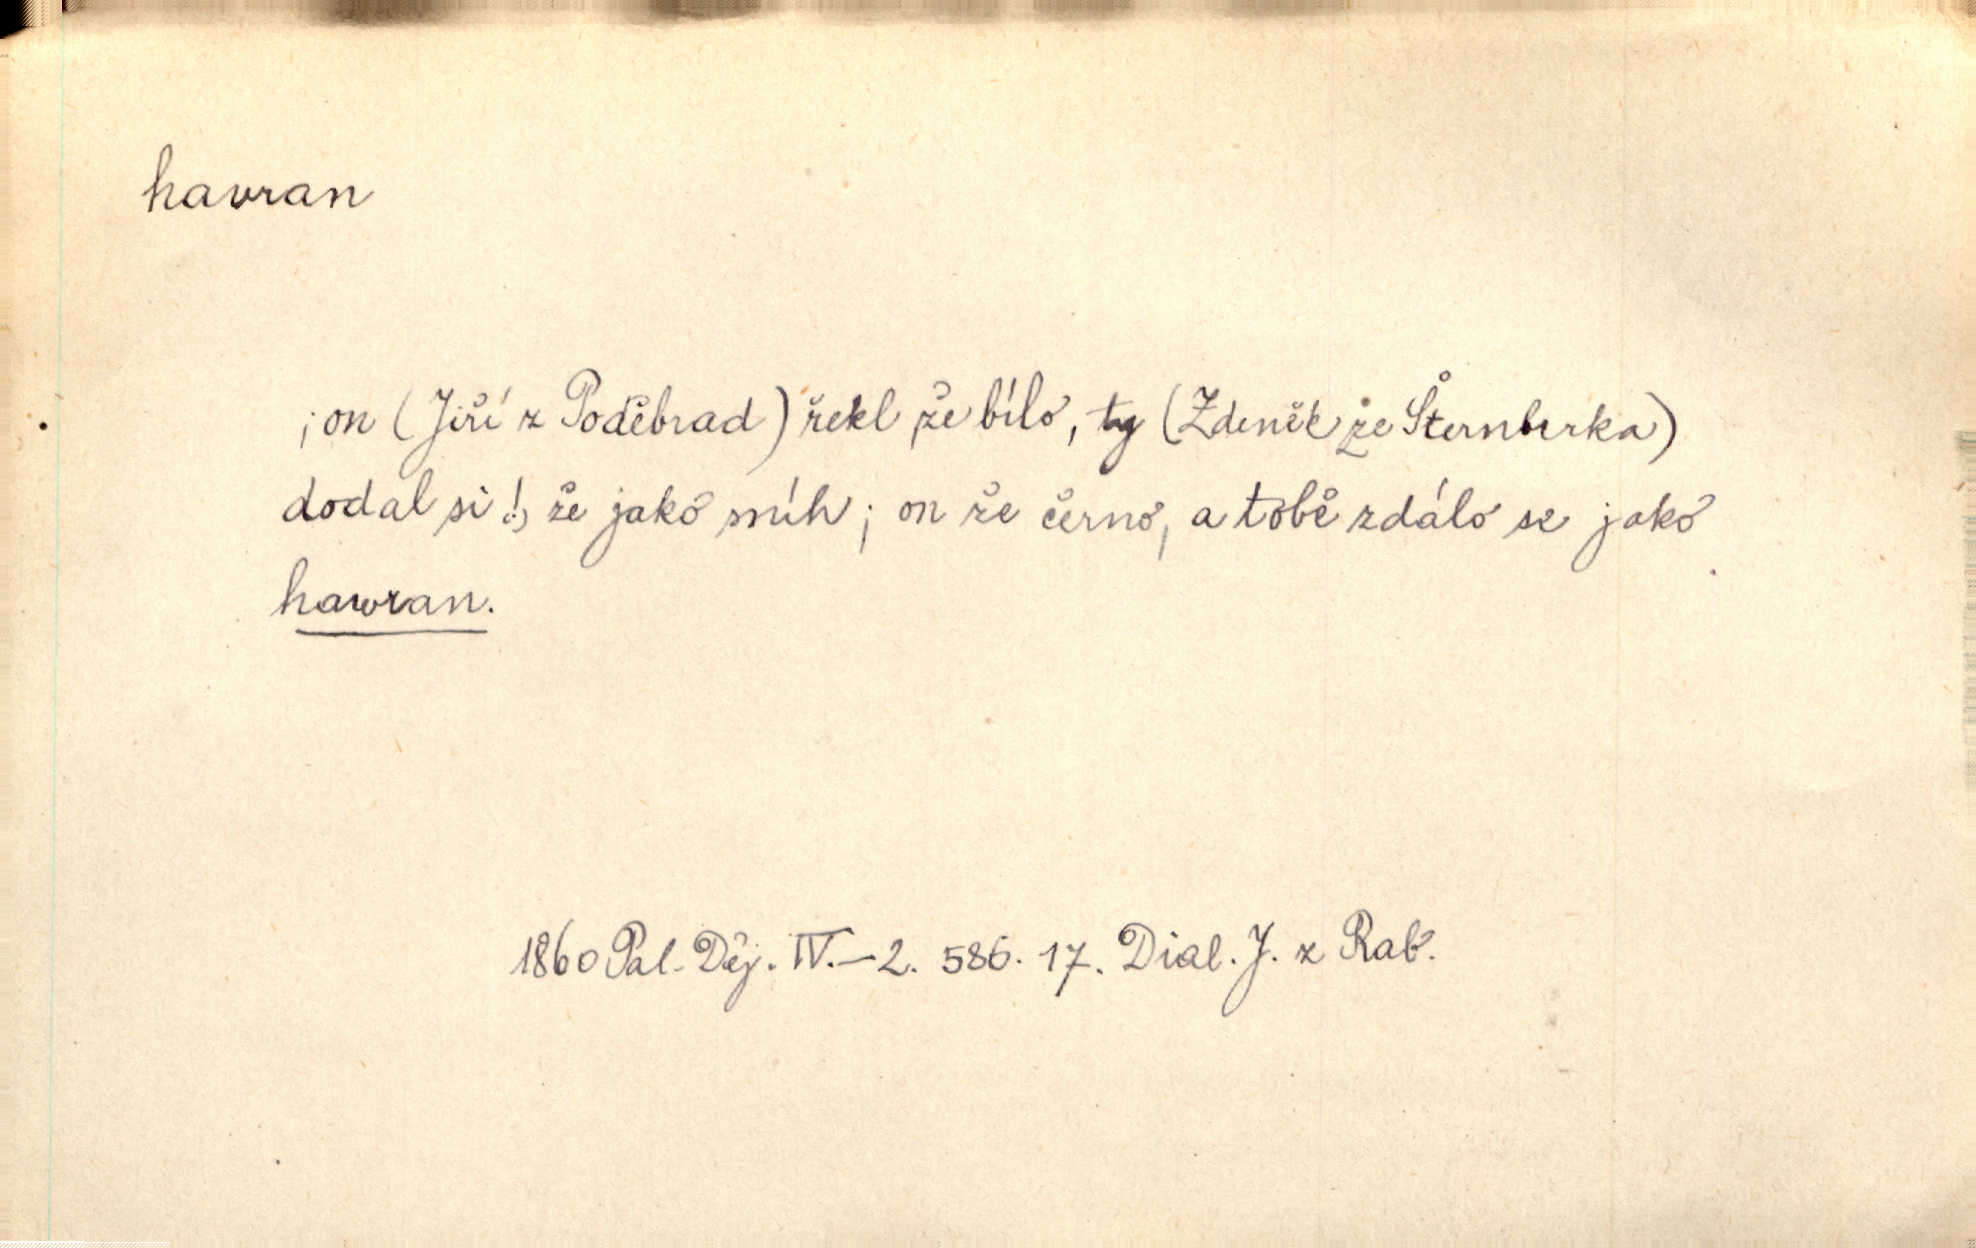 havran
; on (Jiří z Poděbrad) řekl že bílo, ty (Zdeněk ze Šternberka)
dodal si!, že jako sníh; on že černo, a tobě zdálo se jako
hawran.
1860 Pal. Děj. IV.-2. 586. 17. Dial. J. z Rab.